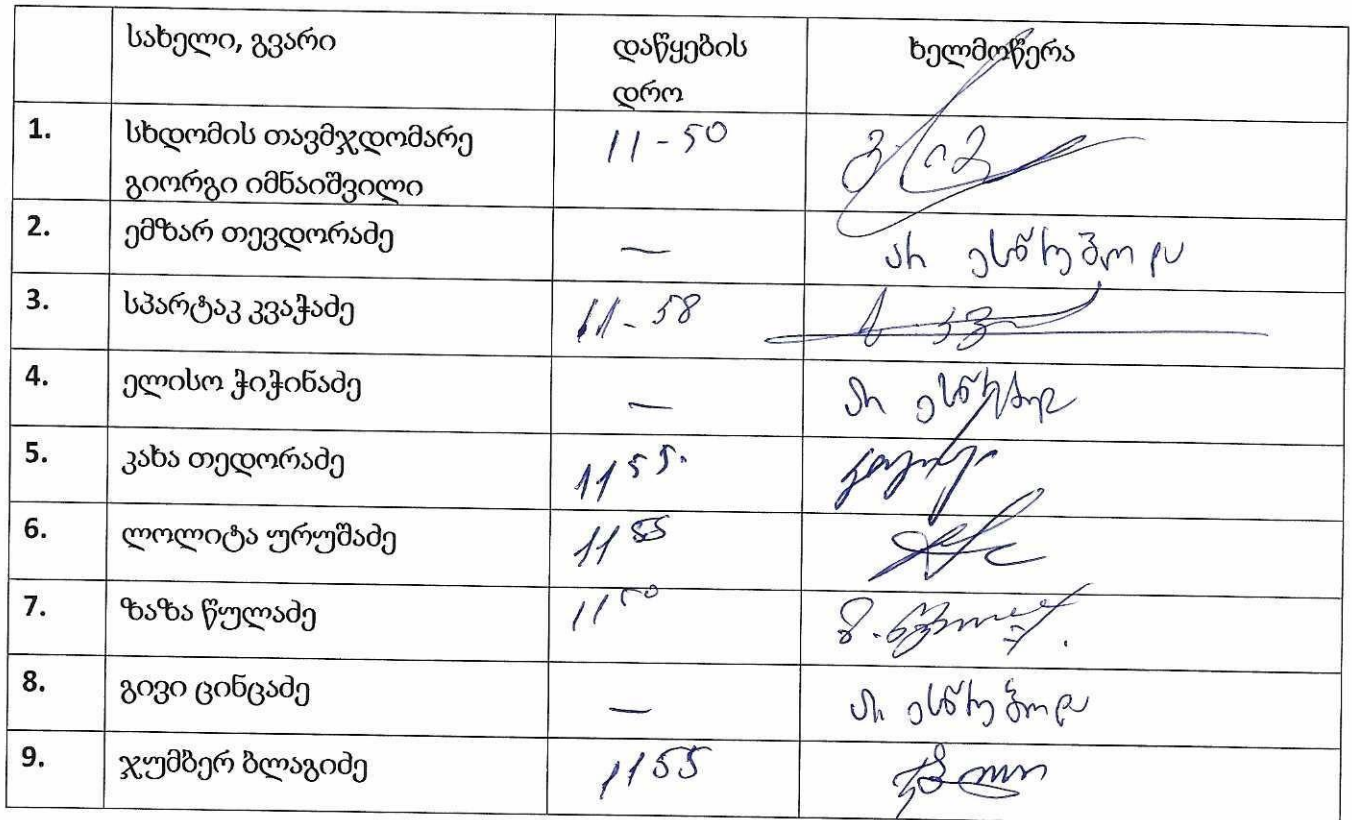 სახელი, გვარი დაწყების ხელმოწერა
დრო
1. სხდომის თავმჯდომარე 11-50
გიორგი იმნაიშვილი
2. ემზარ თევდორაძე — არ ესწრებოდა
3. სპარტაკ კვაჭაძე 11-58
4. ელისო ჭიჭინაძე — არ ესწრებოდ
5. კახა თედორაძე 11 55.
6. ლოლიტა ურუშაძე 11 55
7. ზაზა წულაძე 11 50
8. გივი ცინცაძე — არ ესწრებოდა
9. ჯუმბერ ბლაგიძე 11 55